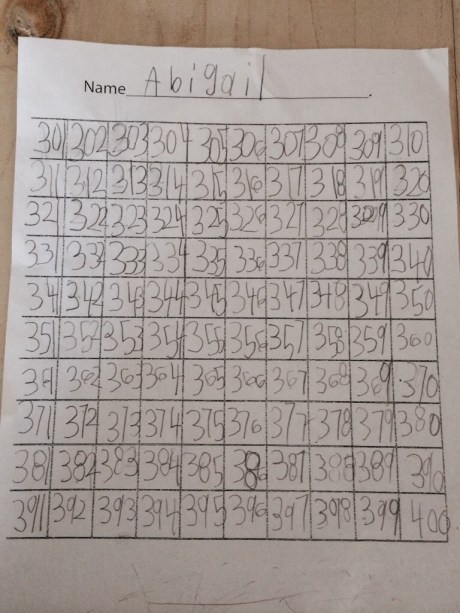 Name Abigail
301 302 303 304 305 306 307 308 309 310
311 312 313 314 315 316 317 318 319 320
321 322 323 324 325 326 327 328 329 330
331 332 333 334 335 336 337 338 339 340
341 342 343 344 345 346 347 348 349 350
351 352 353 354 355 356 357 358 359 360
361 362 363 364 365 366 367 368 369 370
371 372 373 374 375 376 377 378 379 380
381 382 383 384 385 386 387 388 389 390
391 392 393 394 395 396 397 398 399 400